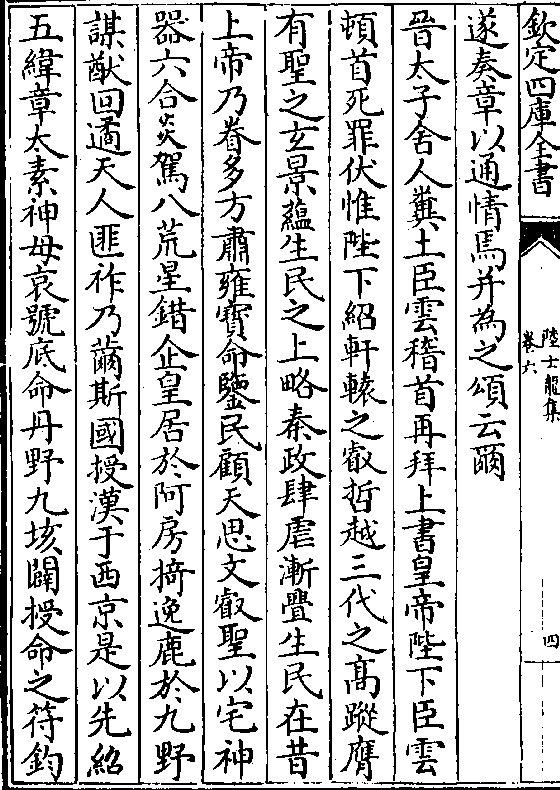 欽定四庫全書
陸士龍集
卷六
四
遂奏章以通情焉并為之頌云爾
晉太子舍人糞土臣雲稽首再拜上書皇帝陛下臣雲
頓首死罪伏惟陛下紹軒轅之叡哲越三代之高蹤膺
有聖之玄景蘊生民之上略秦政肆虐漸釁生民在昔
上帝乃眷多方肅雍寶命鑒民顧天思文叡聖以宅神
器六合炎駕八荒星錯企皇居於阿房掎逸鹿於九野
謀猷回遹天人匪祚乃薾斯國授漢于西京是以先紹
五緯章太素神母哀號底命丹野九垓闢授命之符鈞